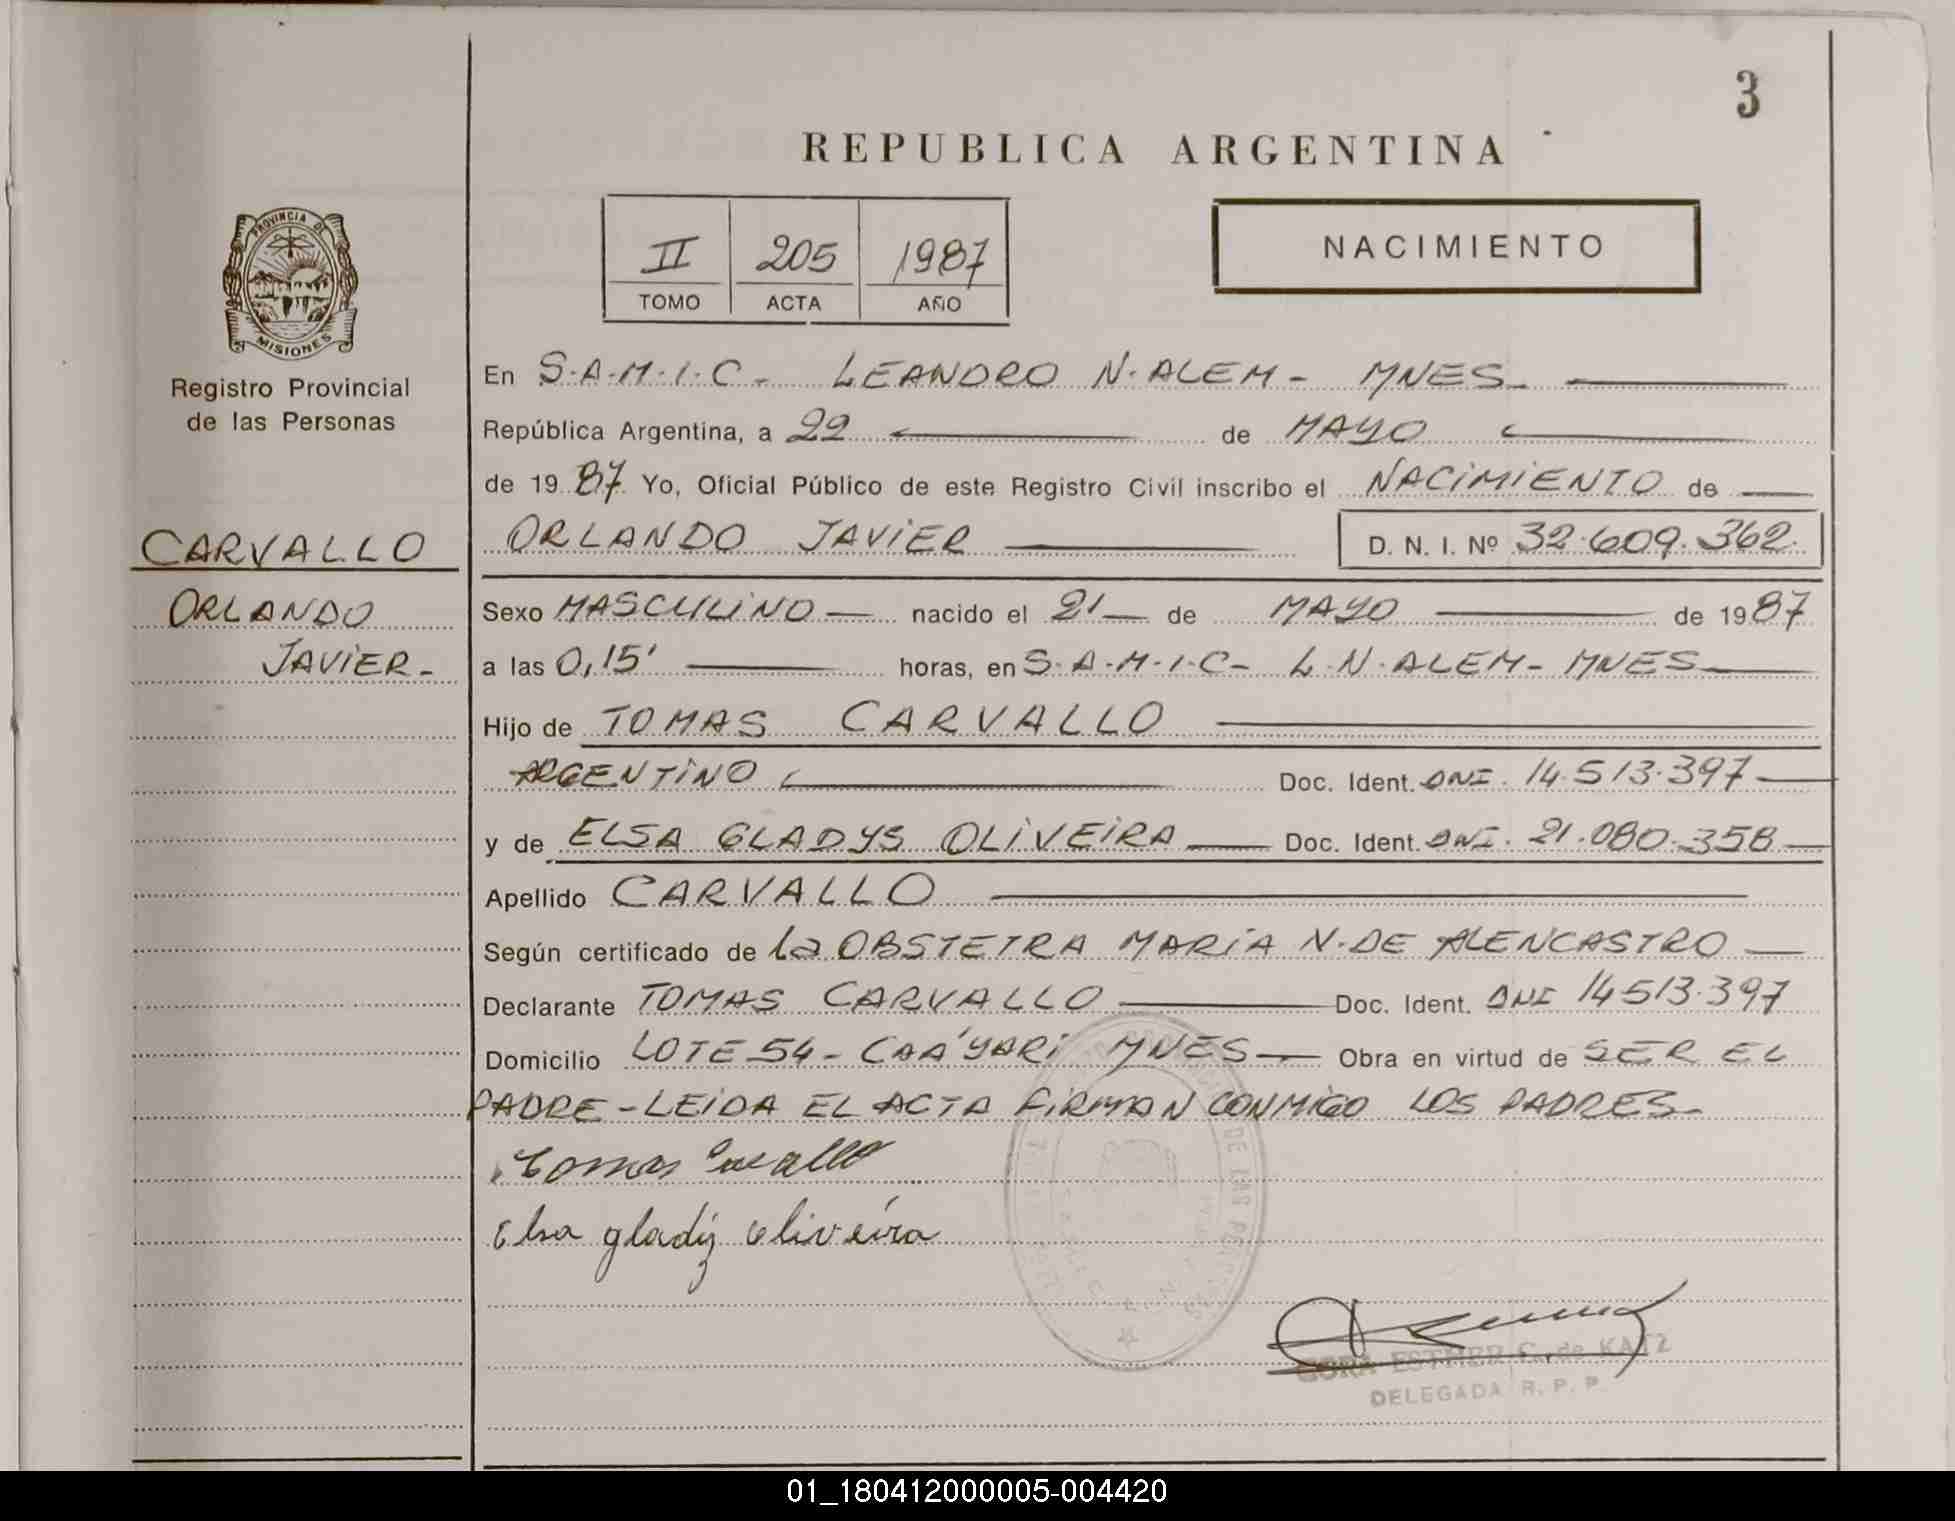 3
REPUBLICA ARGENTINA
PROVINCIA DE
MISIONES
Registro Provincial
de las Personas
II 205 1987
TOMO ACTA AÑO
NACIMIENTO
CARVALLO
ORLANDO
JAVIER-
En S.A.M.I.C- LEANDRO N. ALEM- MNES-
República Argentina, a 22 de MAYO
de 1987 Yo, Oficial Público de este Registro Civil inscribo el NACIMIENTO de
ORLANDO JAVIER D. N. I. Nº 32.609.362.
Sexo MASCULINO nacido el 21 de MAYO de 1987
a las 0,15' horas, en S.A.M.I.C- L.N.ALEM- MNES
Hijo de TOMAS CARVALLO
ARGENTINO Doc. Ident. DNI. 14.513.397
y de ELSA GLADYS OLIVEIRA Doc. Ident. DNI. 21.080.358
Apellido CARVALLO
Según certificado de la OBSTETRA MARIA N. DE ALENCASTRO
Declarante TOMAS CARVALLO Doc. Ident. DNI 14513.397
Domicilio LOTE 54- CAA'YARI MNES Obra en virtud de SER EL
PADRE-LEIDA EL ACTA FIRMAN CONMIGO LOS PADRES-
Tomas Carvallo
Elsa gladiz oliveira
ESTHER C. de KATZ
DELEGADA R. P. P.
01_180412000005-004420